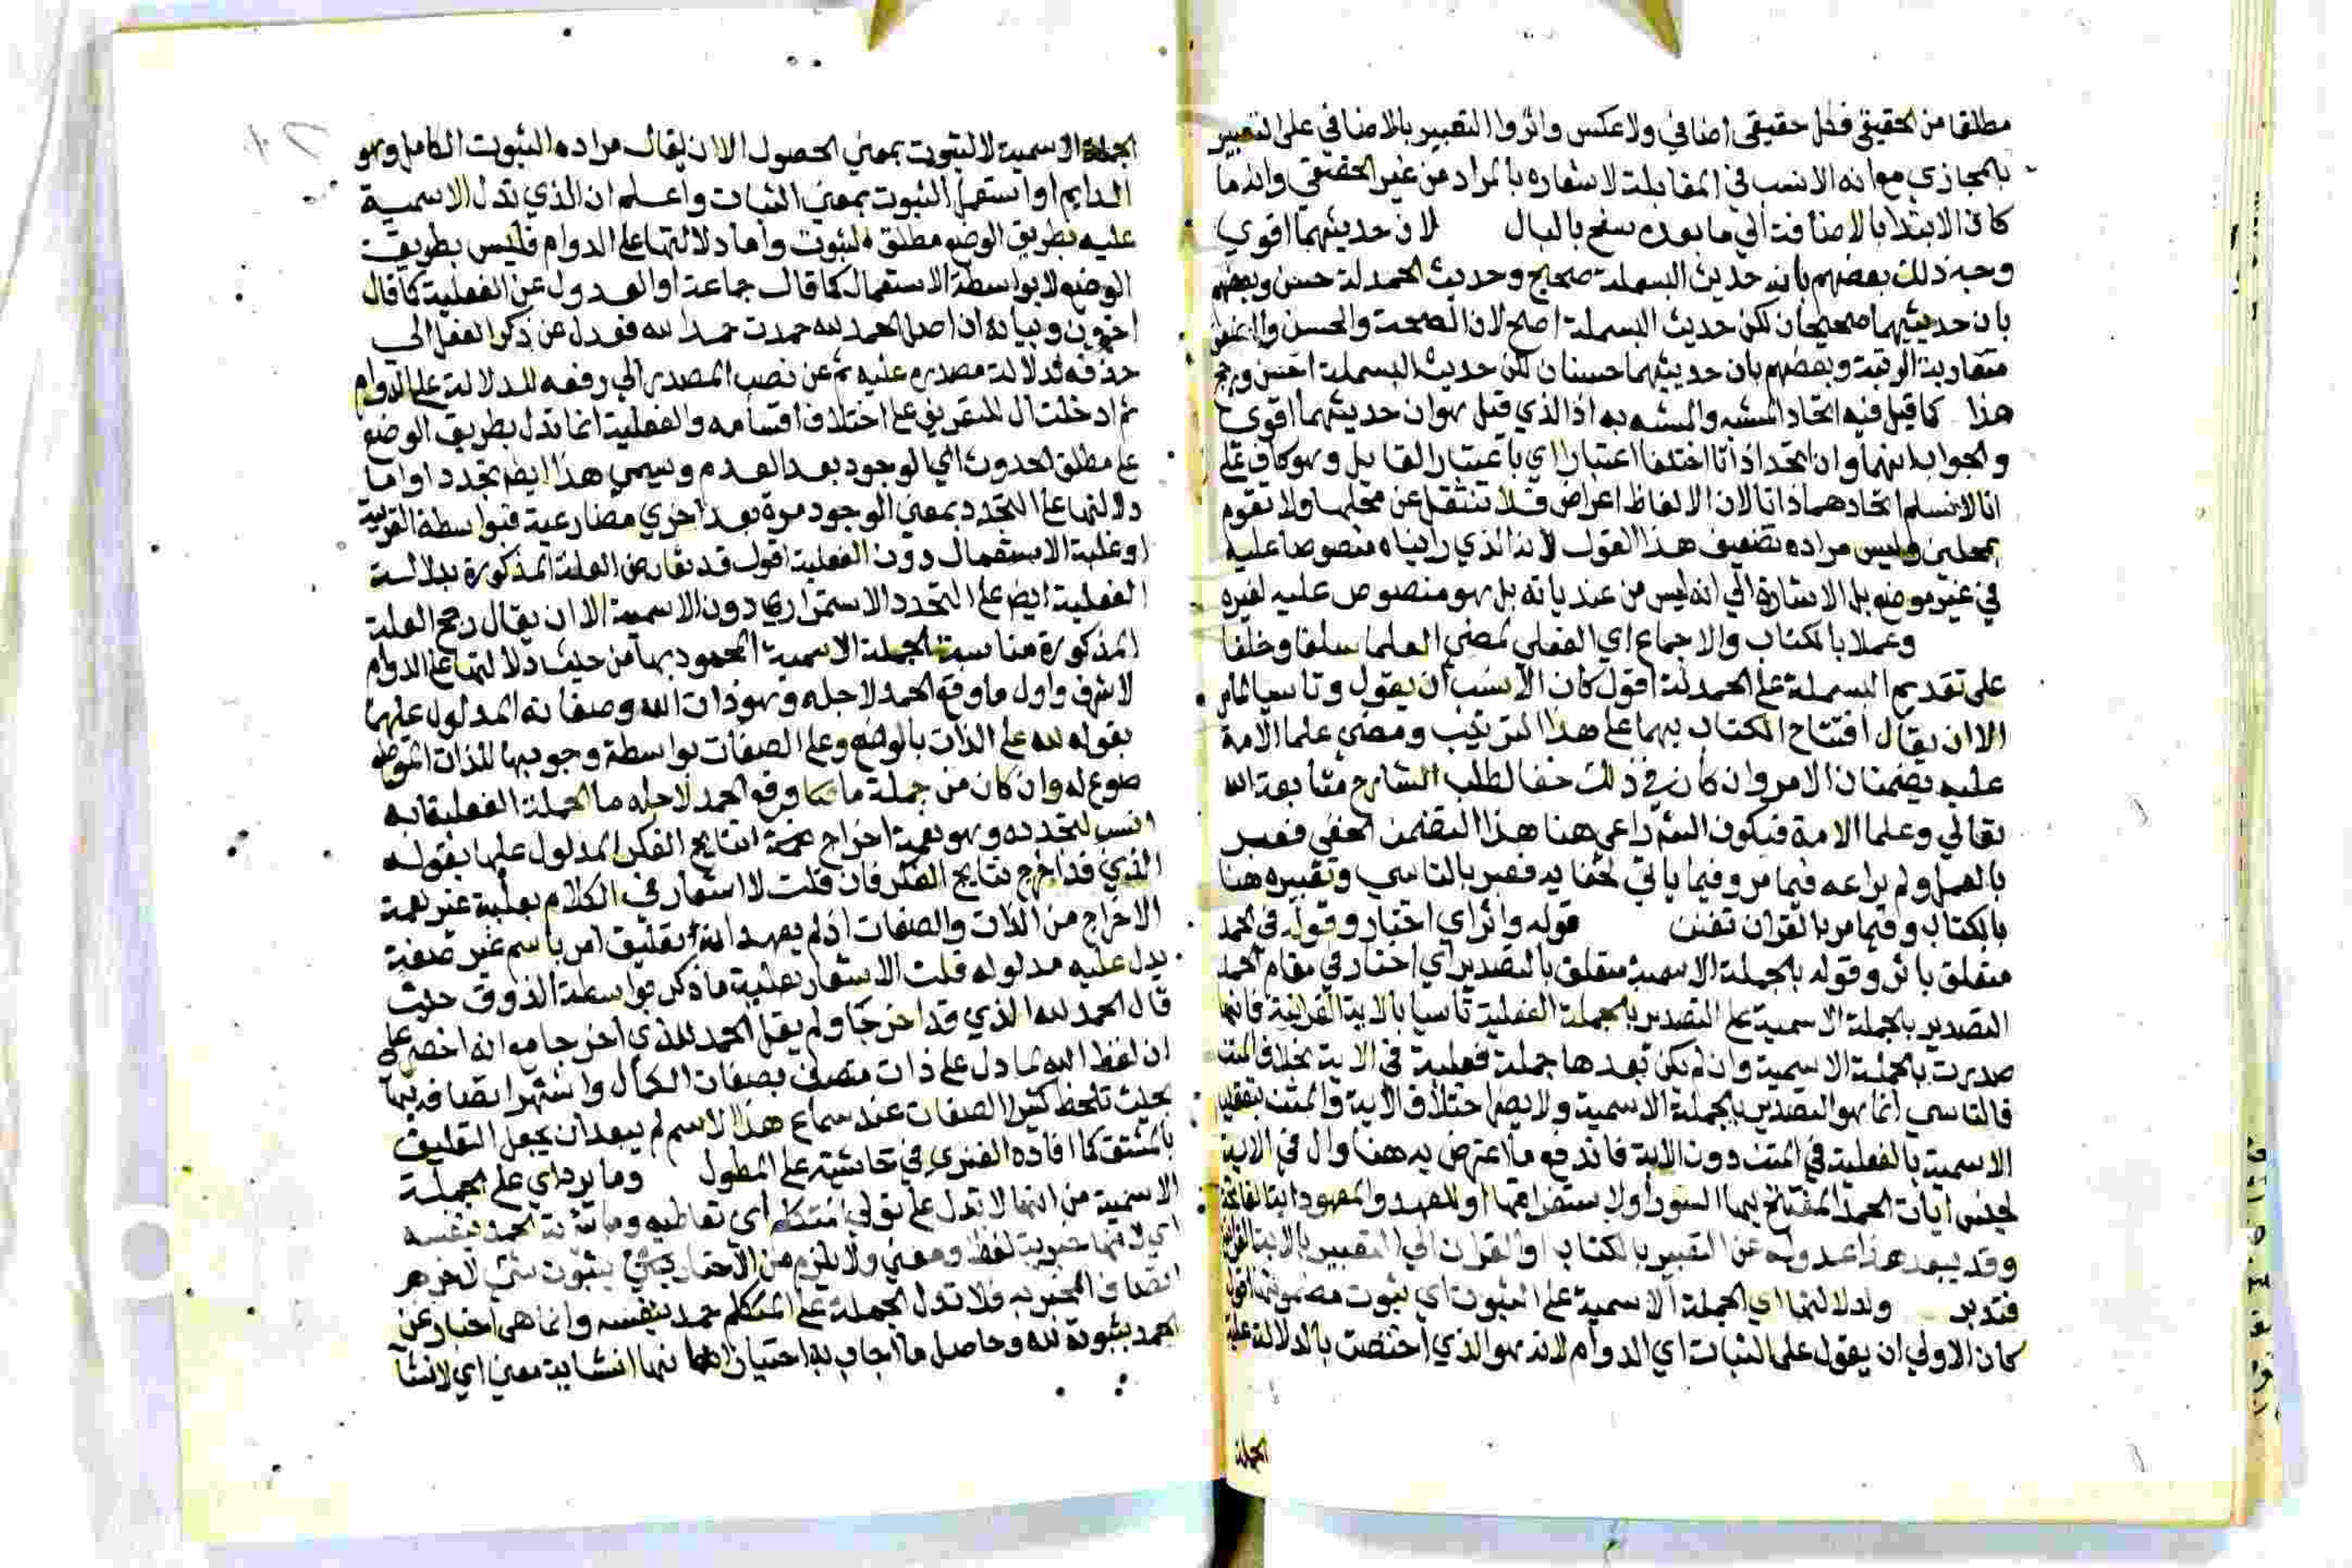 مطلقا من الحقيقي فكل حقيقي اضافي ولا عكس واثروا التعبير بالاضافي على التعبير
بالمجازي مع انه الانسب في المقابلة لاشعاره بالمراد من غير الحقيقي وانما
كان الابتدا بالاضافة الي ما بعده سنح بالبال لان حديثهما اقوي
وجه ذلك بعضهم بان حديث البسملة صحيح وحديث الحمدلة حسن وبعضهم
بان حديثيهما صحيحان لكن حديث البسملة اصح لان الصحة والحسن
متفاوتة الرتبة وبعضهم بان حديثيهما حسنان لكن حديث البسملة احسن
هذا كما قيل فيه اتحاد المشبه والمشبه به اذ الذي قيل هو ان حديثهما اقوي
والجواب انهما وان اتحدا ذاتا اختلفا اعتبارا اي باعتبار القايل وهو كاف علي
انا لا نسلم اتحادهما ذاتا لان الالفاظ اعراض فلا تنتقل عن محلها ولا تقوم
بمحلين وليس مراده تضعيف هذا القول لانه الذي رايناه منصوصا عليه
في غير موضع بل الاشارة الي انه ليس من عندياته بل هو منصوص عليه لغيره
وعملا بالكتاب والاجماع اي الفعلي لمضي العلما سلفا وخلفا
على تقديم البسملة على الحمدلة اقول كان الانسب ان يقول وتاسيا
الا ان يقال افتتاح الكتاب بهما على هذا الترتيب ومضي علما الامة
عليه يضمنان الامر وان كان في ذلك خفا لطلب الشارع متابعة الله
تعالي وعلما الامة فيكون الشم راعي هنا هذا التضمن الخفي فعبر
بالعمل ولم يراعه فيما مر وفيما ياتي لخفايه فعبر بالتاسي وتعبيره هنا
بالكتاب وفيما مر بالقران تفنن قوله واثر اي اختار وقوله في الحمد
متعلق باثر وقوله بالجملة الاسمية متعلق بالتصدير اي اختار في مقام الحمد
التصدير بالجملة الاسمية على التصدير بالجملة الفعلية تاسيا بالاية القرانية فانها
صدرت بالجملة الاسمية وان لم يكن بعدها جملة فعلية في الاية بخلاف المتن
فالتاسي انما هو التصدير بالجملة الاسمية ولا يضر اختلاف الاية والمتن بتعقيب
الاسمية بالفعلية في المتن دون الاية فاندفع ما اعترض به هنا وال في الاية
لجنس ايات الحمد المفتتح بها السور او لاستغراقها او للعهد والمعهود اية الفاتحة
وقد يبعد هذا عدوله عن التعبير بالكتاب او القران الي التعبير بالاية
فتدبر ولدلالتها اي الجملة الاسمية على الثبوت اي ثبوت مضمونها اقول
كان الاولي ان يقول على الثبات اي الدوام لانه هو الذي اختصت بالدلالة عليه
الجملة
الجملة الاسمية لا الثبوت بمعني الحصول الا ان يقال مراده الثبوت الكامل وهو
الدايم او استعمل الثبوت بمعني الثبات واعلم ان الذي تدل الاسمية
عليه بطريق الوضع مطلق الثبوت واما دلالتها على الدوام فليس بطريق
الوضع لا بواسطة الاستعمال كما قال جماعة او العدول عن الفعلية كما قال
اخرون وبيانه ان اصل الحمد لله حمدت حمدا لله فعدل عن ذكر الفعل الي
حذفه لدلالة مصدره عليه ثم عن نصب المصدر الي رفعه للدلالة على الدوام
ثم ادخلت ال للتعريف على اختلاف اقسامه والفعلية انما تدل بطريق الوضع
على مطلق الحدوث اي الوجود بعد العدم ويسمي هذا ايضم تجددا واما
دلالتها على التجدد بمعني الوجود مرة بعد اخري مضارعية فبواسطة القرينة
او غلبة الاستعمال دون الفعلية اقول قد تعارض العلة المذكورة بدلالة
الفعلية ايضم على التجدد الاستمراري دون الاسمية الا ان يقال رجح العلة
المذكورة مناسبة الجملة الاسمية المحمود بها من حيث دلالتها على الدوام
لاشرف واول ما وقع الحمد لاجله وهو ذات الله وصفاته المدلول عليهما
بقوله لله على الذات بالوضع وعلى الصفات بواسطة وجوبها للذات المو
ضوع له وان كان من جملة ما وقع الحمد لاجله ما الجملة الفعلية به
انسب لتجدده وهو نعمة اخراج نتايج الفكر المدلول عليها بقوله
الذي قد اخرج نتايج الفكر فان قلت لا اشعار في الكلام بعلية غير نعمة
الاخراج من الذات والصفات اذ لم يعهد تعليق امر باسم غير صفة
يدل عليه مدلوله قلت الاشعار بعلية ما ذكر بواسطة الذوق حيث
قال الحمد لله الذي قد اخرجا ولم يقل الحمد للذي اخرجا مع انه اخصر على
ان لفظ الله لما دل على ذات متصف بصفات الكمال واشتهر اتصافه بها
بحيث تلحظ كثيرا الصفات عند سماع هذا الاسم لم يبعد ان يجعل التعليق
بالمشتق كما افاده الفنري في حاشيته على المطول وما يرد اي على الجملة
الاسمية من انها لا تدل على تولي المتكلم اي تعاطيه الحمد بنفسه
اي لانها خبرية لفظا ومعني ولا يلزم من الاخبار بثبوت شي لاخر
اتصاف المخبر به فلا تدل الجملة على المتكلم حمد بنفسه وانما هي اخبار عن
الحمد بثبوته لله وحاصل ما اجاب به اختيار انها انشاية معني اي لانشا